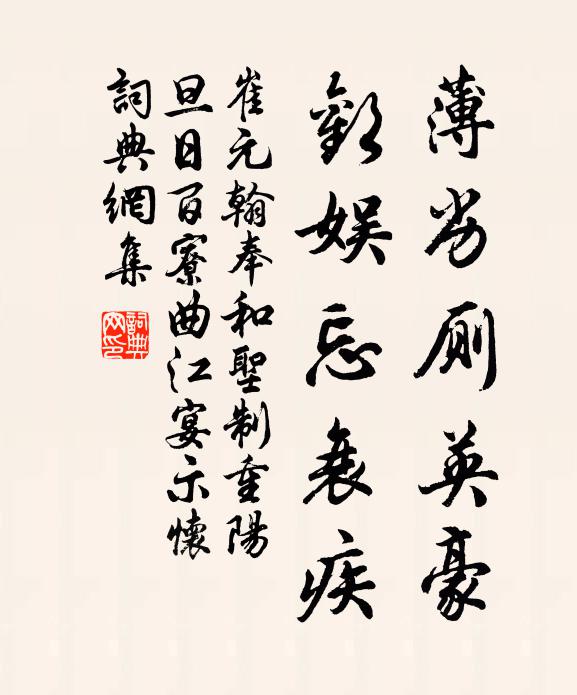 薄劣厠英豪
歡娱忘衰疾
崔元翰奉和聖制重陽
旦日百寮曲江宴示懷
詞典網集
詞典網印